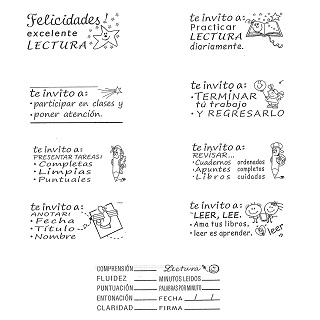 Felicidades!
excelente
LECTURA
te invito a:
Practicar
LECTURA
diariamente.
te invito a:
• participar en clases y
• poner atención.
te invito a:
• TERMINAR
tú trabajo
Y REGRESARLO
te invito a:
PRESENTAR TAREAS:
• Completas
• Limpias
• Puntuales
te invito a:
REVISAR...
• Cuadernos ordenados
• Apuntes completos
• Libros cuidados
te invito a:
ANOTAR:
• Fecha
• Título
• Nombre
te invito a:
LEER, LEE.
• Ama tus libros,
• leer es aprender.
leer
COMPRENSIÓN Lectura
FLUIDEZ MINUTOS LEIDOS
PUNTUACIÓN PALABRAS POR MINUTO
ENTONACIÓN FECHA / /
CLARIDAD FIRMA